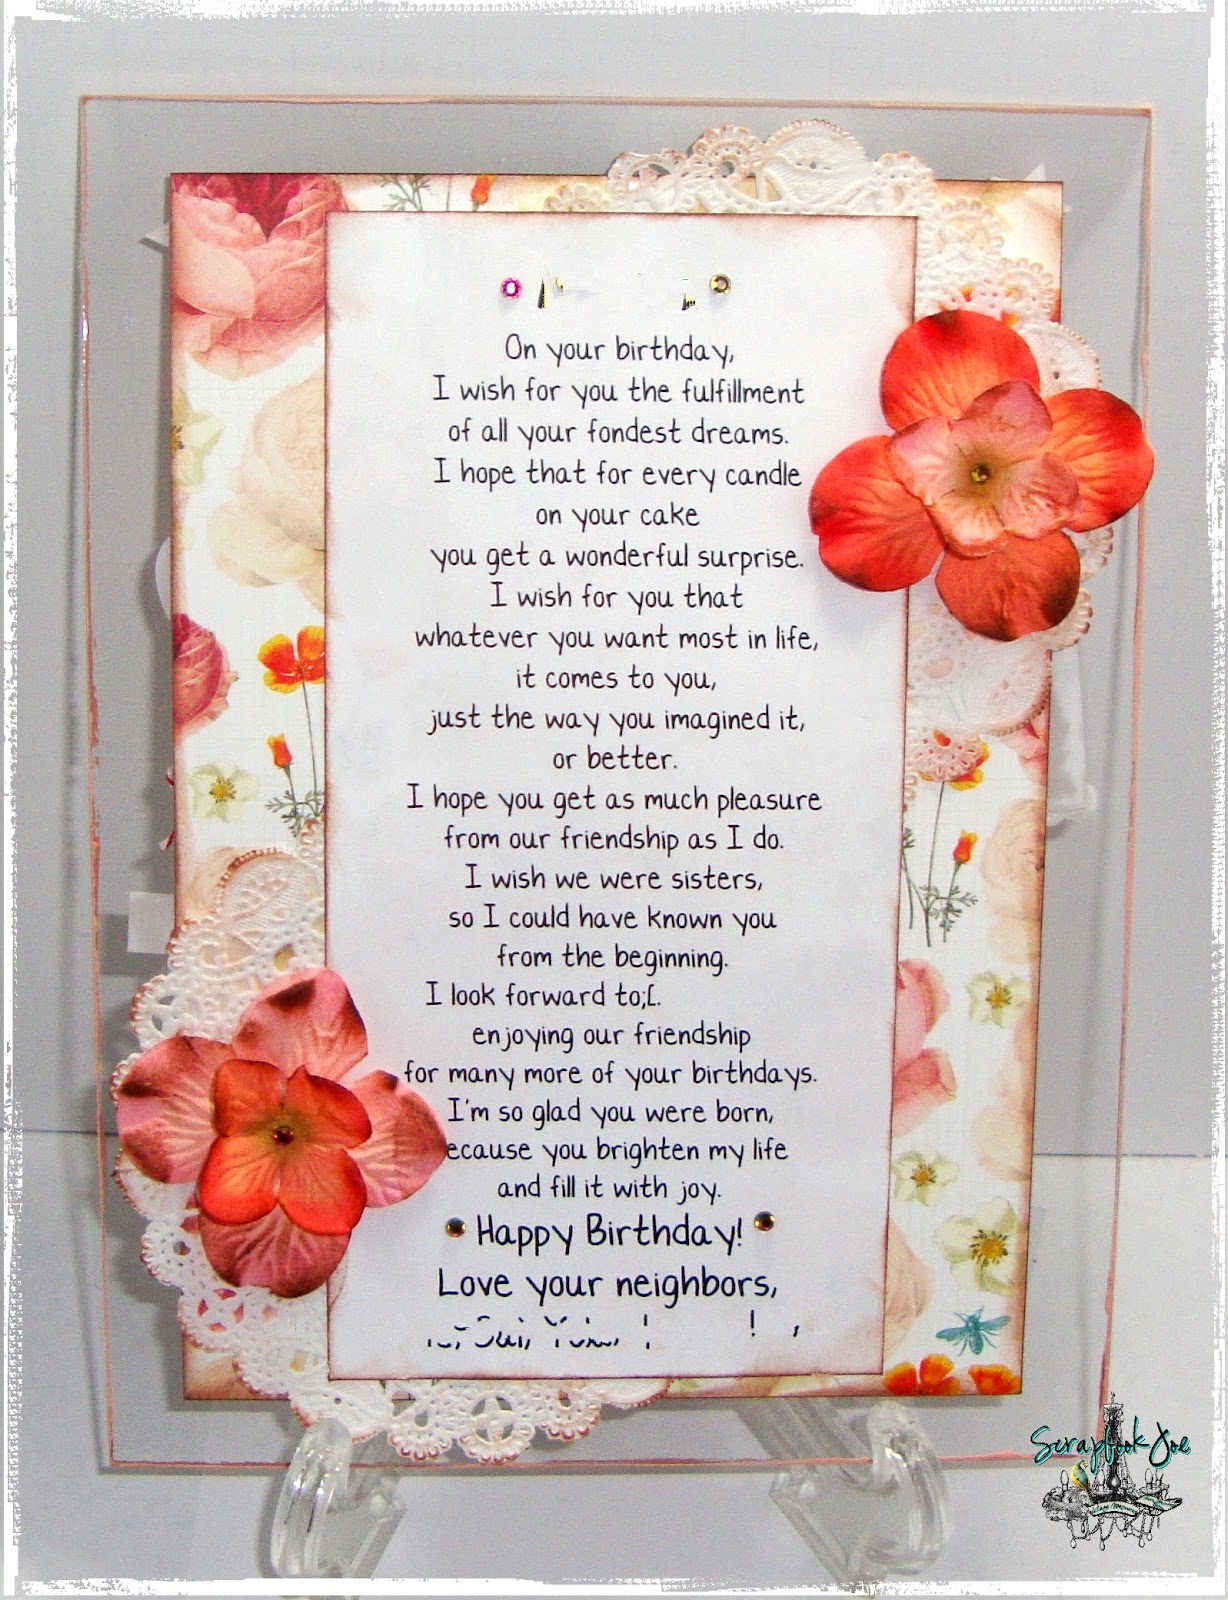 On your birthday,
I wish for you the fulfillment
of all your fondest dreams.
I hope that for every candle
on your cake
you get a wonderful surprise.
I wish for you that
whatever you want most in life,
it comes to you,
just the way you imagined it,
or better.
I hope you get as much pleasure
from our friendship as I do.
I wish we were sisters,
so I could have known you
from the beginning.
I look forward to;[.
enjoying our friendship
for many more of your birthdays.
I'm so glad you were born,
ecause you brighten my life
and fill it with joy.
Happy Birthday!
Love your neighbors,
Scrapbook Joe